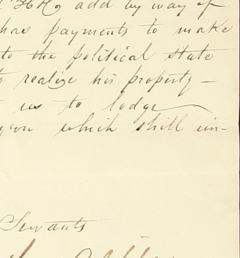 add by way of
has payments to make
to the political state
realize his property —
us to lodge
which shill un-
Servants